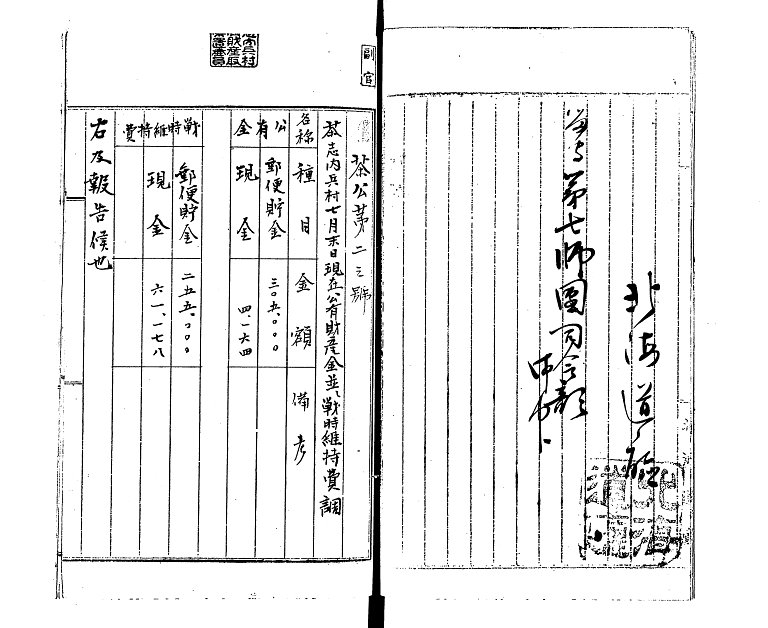 北海道廳
第七師團司令部
御中
副官
茶公第二三號
茶志内兵村七月末日現在公有財産金並戰時維持費調
名称 種目 金額 備考
公有金 郵便貯金 三〇五、〇〇〇
現金 四、一六四
戰時維持費 郵便貯金 二五五、〇〇〇
現金 六一、一七八
右及報告候也